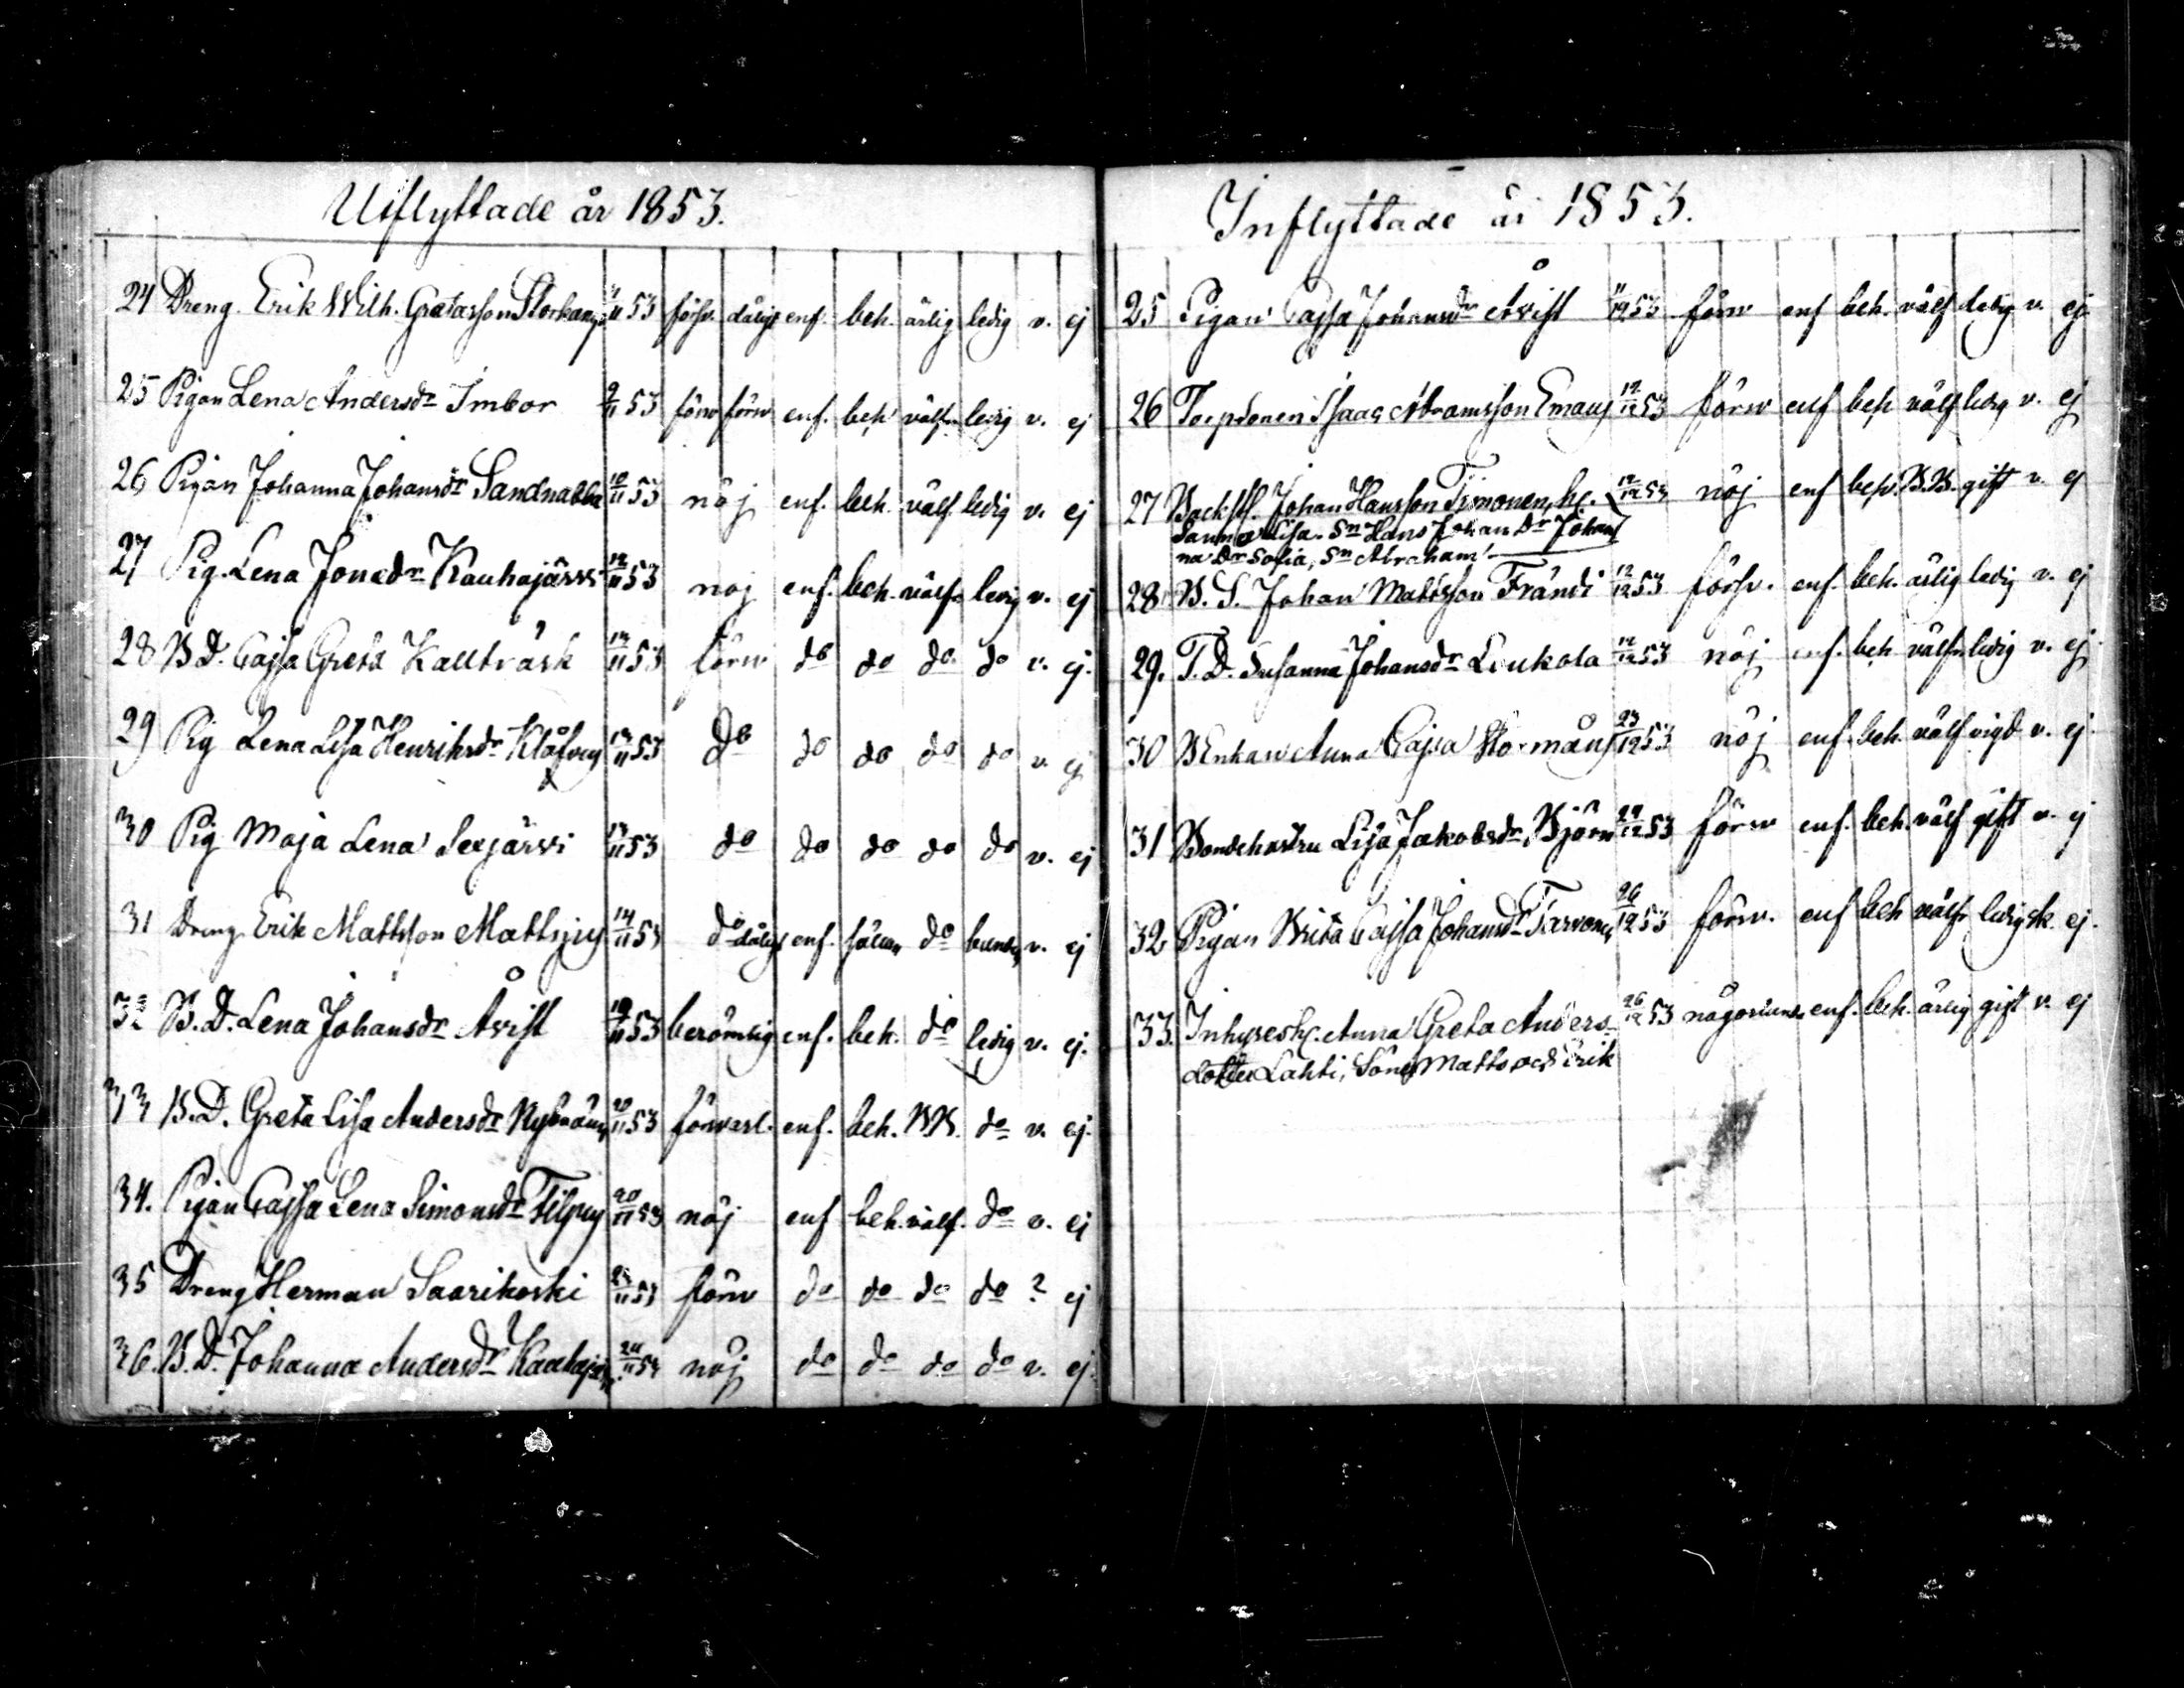 Utflyttade år 1853.
24 Dreng. Erik Wilh. Gretasson Storkang 11 53 försv. dåligt enf. beh. ärlig ledig v. ej
25 Pigan Lena Andersdr Imbor 9/11 53 förw förw enf. beh välf. ledig v. ej
26 Pigan Johanna Johansdr Sandnabba 10/11 53 nöj enf. beh. välf. ledig v. ej
27 Pig. Lena Jonædr Kauhajärvi 12/11 53 nöj enf. beh. välf. ledig v. ej
28 B. D. Cajsa Greta Kallträsk 13/11 53 förw do do do do v. ej.
29 Pig Lena Lisa Henriksdr 13/11 53 do do do do do v. ej
30 Pig Maja Lena Sexjärvi 13/11 53 do do do do do v. ej
31 Dreng Erik Mattsson 14/11 53 do dåligt enf. do v. ej
32 B. D. Lena Johansdr Åvist 19/11 53 berömlig enf. beh. do ledig v. ej.
33 B. D. Greta Lisa Andersdr 20/11 53 förvarl. enf. beh. BB. do v. ej.
34. Pigan Cajsa Lena Simonsdr Filpus 20/11 53 nöj enf beh. välf. do v. ej
35 Dreng Herman Saarikoski 24/11 53 förw do do do do ? ej
36. B. D. Johanna Andersdr 24/11 53 nöj do do do do v. ej.
Inflyttade år 1853.
25 Pigan Cajsa Johansdr Åvist 11/12 53 förw enf beh. välf ledig v. ej
26 Isaac Abramsson Emaus 12/12 53 förw enf beh välf ledig v. ej
27 Backst. Johan Hansson Timonen, h. 12/12 53 nöj enf beh. B.B. gift v. ej
Sanna Lisa. Sn Hans Johan Dr Johan
na Dr Sofia, Sn Abraham
28 B. S. Johan Mattsson Frändi 12/12 53 försv. enf. beh. ärlig ledig v. ej
29. T. D. Susanna Johansdr Loukola 12/12 53 nöj enf. beh. välf. ledig v. ej
30 BEnkan Anna Cajsa Stormåns 23/12 53 nöj enf. beh. välf vigd v. ej.
31 Bondehustru Lisa Jakobsdr Björn 24/12 53 förw enf. beh. välf gift v. ej
32 Pigan Brita Cajsa Johansdr Tarvonen 26/12 53 förw. enf beh välf. ledig sk. ej.
33. Inhyresh. Anna Greta Anders- 26/12 53 någorlunda enf. beh. ärlig gift v. ej
dotter Lahti, Söner Matts och Erik